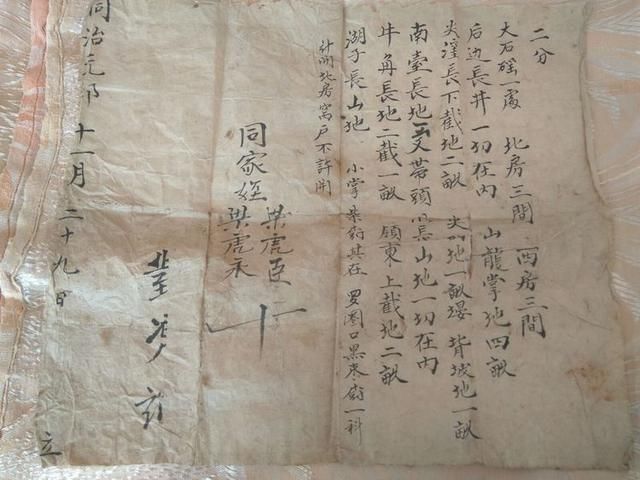 二分
大石磘一處 北房三間 西房三間
后边長井一切在内 山龍掌地四畝
尖窪長下截地二畝 尖 地一畝堰 背坡地一畝
南臺長地 帶頭 山地一切在内
牛角長地二截一畝 領東上截地二畝
湖子長山地 小掌 其在 口黑枣 一科
計開北房窩戶不許開
同家經 梁虎臣
梁虎禾
同治元年 十一月 二十九日 立